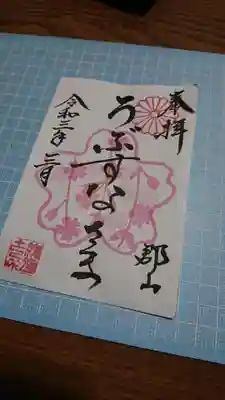 奉拝
郡山
うぶすな
令和三年
三月